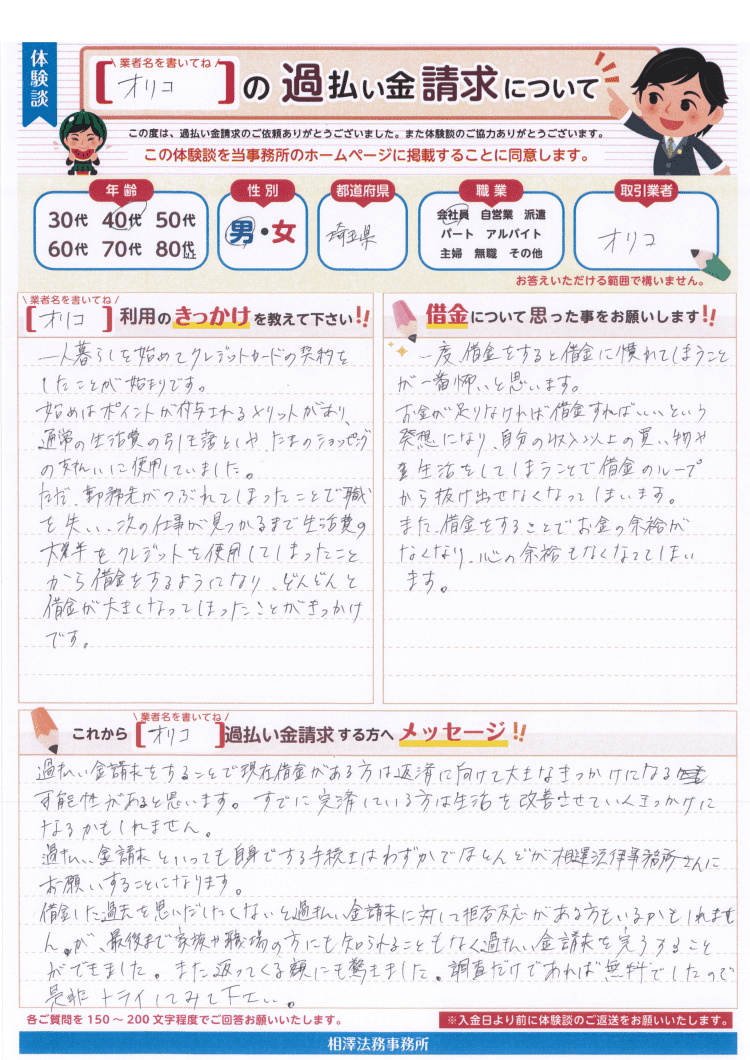 体験談
\業者名を書いてね/
[オリコ]の過払い金請求について
この度は、過払い金請求のご依頼ありがとうございました。また体験談のご協力ありがとうございます。
この体験談を当事務所のホームページに掲載することに同意します。
年齢
30代 40代 50代
60代 70代 80代以上
性別
男・女
都道府県
埼玉県
職業
会社員 自営業 派遣
パート アルバイト
主婦 無職 その他
取引業者
オリコ
お答えいただける範囲で構いません。
\業者名を書いてね/
[オリコ]利用のきっかけを教えて下さい!!
一人暮らしを始めてクレジットカードの契約を
したことが始まりです。
始めはポイントが付与されるメリットがあり、
通常の生活費の引き落としや、たまのショッピング
の支払いに使用していました。
ただ、勤務先がつぶれてしまったことで職
を失い、次の仕事が見つかるまで生活費の
大半をクレジットを使用してしまったこと
から借金をするようになり、どんどんと
借金が大きくなってしまったことがきっかけ
です。
借金について思った事をお願いします!!
一度、借金をすると借金に慣れてしまうこと
が一番怖いと思います。
お金が足りなければ借金すればいいという
発想になり、自分の収入以上の買い物や
生活をしてしまうことで借金のループ
から抜け出せなくなってしまいます。
また、借金をすることでお金の余裕が
なくなり、心の余裕もなくなってしまい
ます。
\業者名を書いてね/
これから[オリコ]過払い金請求する方へメッセージ!!
過払い金請求をすることで現在借金がある方は返済に向けて大きなきっかけになる
可能性があると思います。すでに完済している方は生活を改善させていくきっかけに
なるかもしれません。
過払い金請求といっても自身でする手続きはわずかでほとんどが相澤法律事務所さんに
お願いすることになります。
借金した過去を思いだしたくないと過払い金請求に対して拒否反応がある方もいるかもしれませ
ん。が、最後まで家族や職場の方にも知られることもなく過払い金請求を完了すること
ができました。また返ってくる額にも驚きました。調査だけであれば無料でしたので
是非トライしてみて下さい。
各ご質問を150～200文字程度でご回答お願いいたします。
※入金日より前に体験談のご返送をお願いいたします。
相澤法務事務所